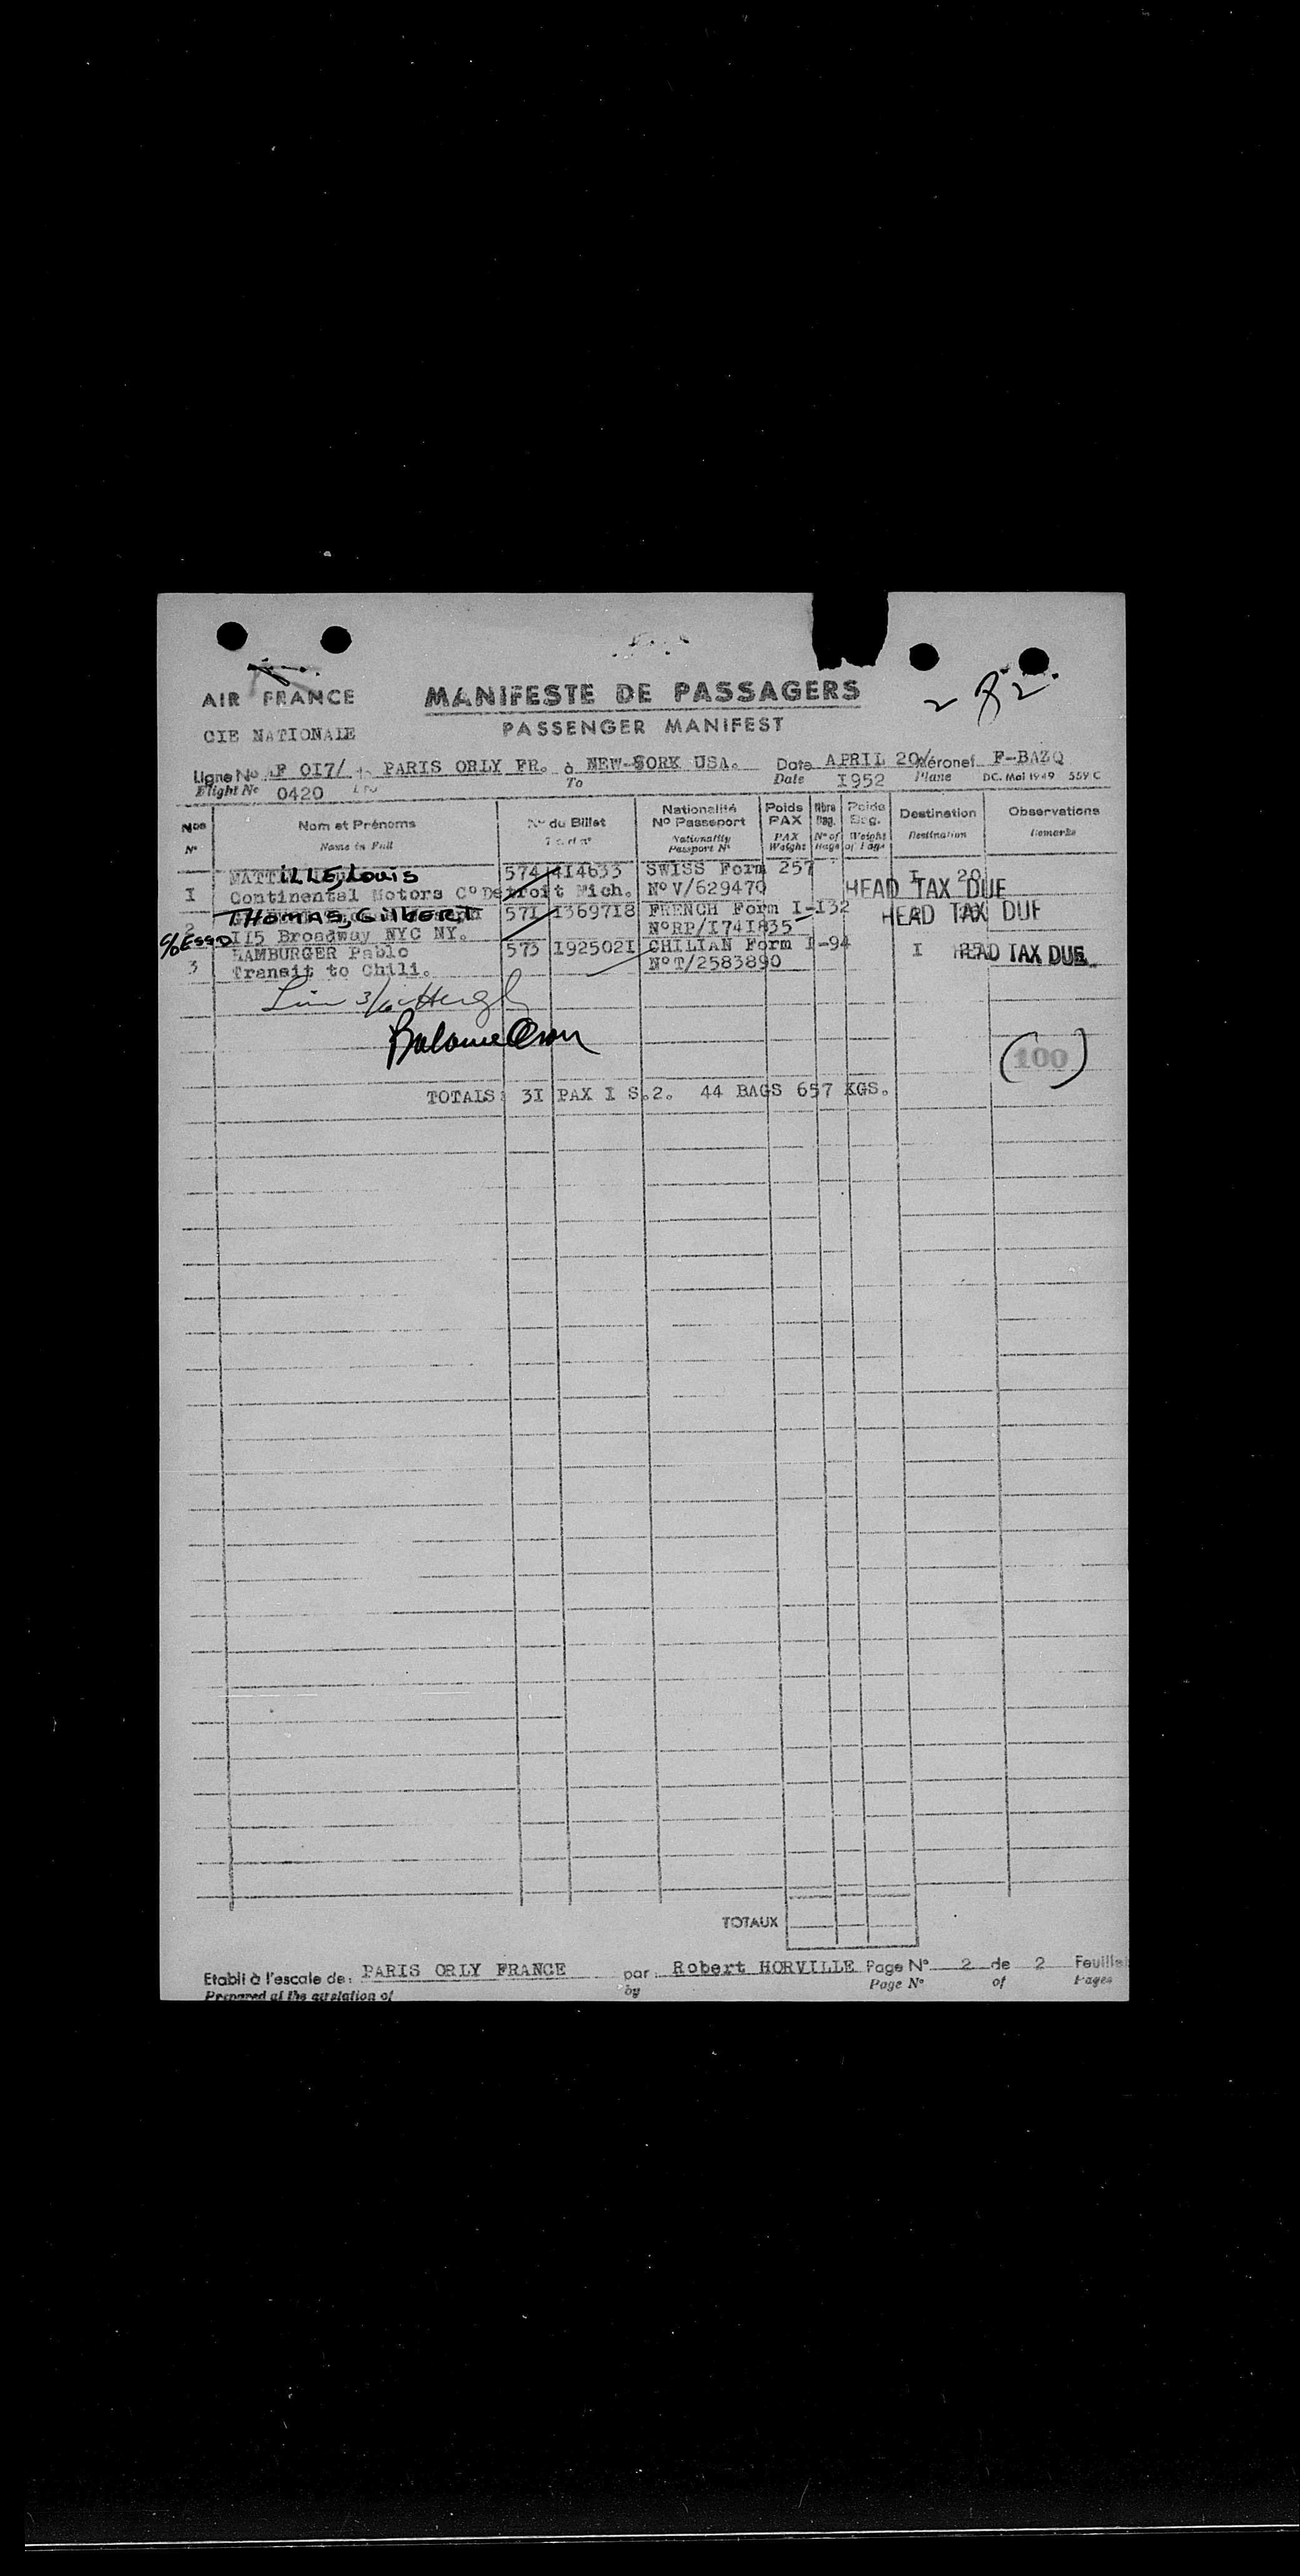 AIR FRANCE
MANIFESTE DE PASSAGERS
PASSENGER MANIFEST
CIE NATIONALE
2 82.
Ligne No AF 017/ PARIS ORLY FR. à NEW-SORK USA. Date APRIL 20/ Aéronef F-BAZQ
Flight No 0420 To Date 1952 Plane DC. Mai 1949 559 C
Nos Nom et Prénoms No du Billet Nationalité No Passeport Poids PAX Nbre Bag. Poids Bag. Destination Observations
No Name in Full Nationality Passport No PAX Weight No of Bags Weight of Bags Destination Remarks
ILLE, Louis 574 414633 SWISS Form 257 I 20
I Continental Motors Co Detroit Mich. No V/629470 HEAD TAX DUE
THOMAS, GILBERT 571 1369718 FRENCH Form I-132 HEAD TAX DUE
2 No RP/1741835
c/o ESSO 115 Broadway NYC NY.
HAMBURGER Pablo 573 1925021 CHILIAN Form I-94 I HEAD TAX DUE
3 Transit to Chili. No T/2583890
(100)
TOTALS: 31 PAX I S.2. 44 BAGS 657 KGS.
TOTAUX
Etabli à l'escale de: PARIS ORLY FRANCE par: Robert HORVILLE Page No 2 de 2 Feuille
Prepared at the by Page No of Pages